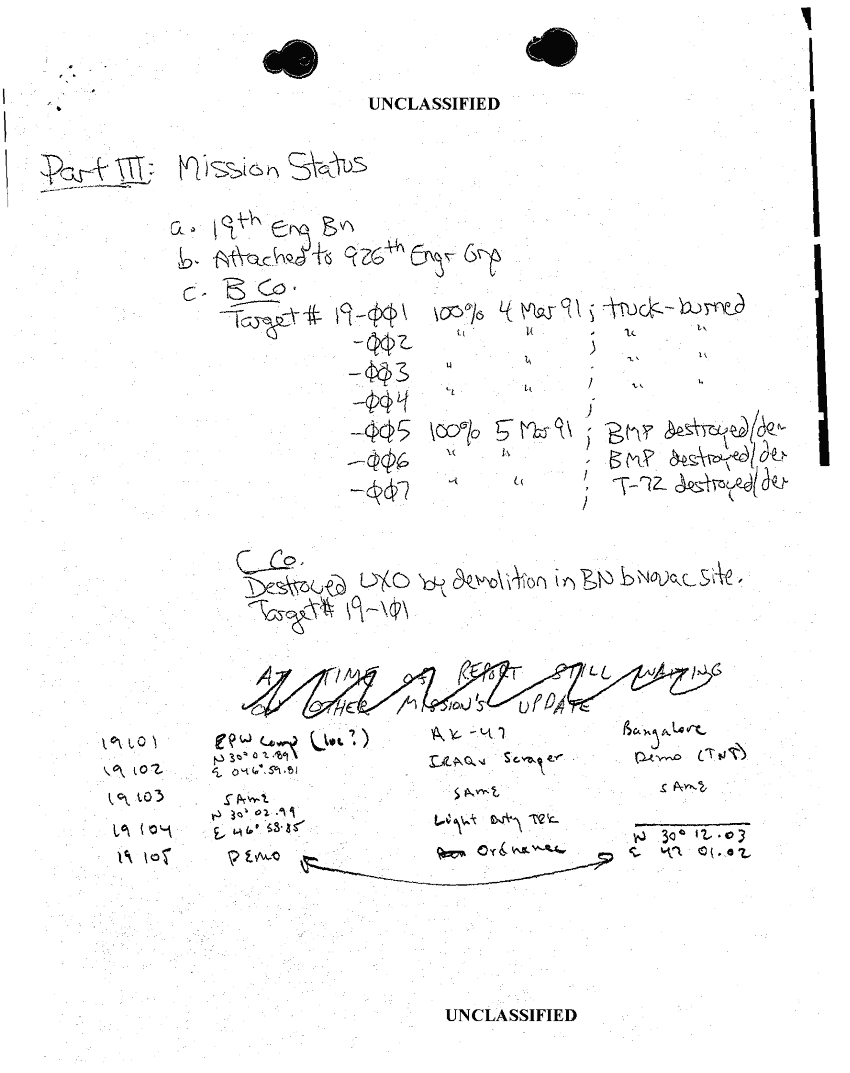 UNCLASSIFIED
Part III: Mission Status
a. 19th Eng Bn
b. Attached to 926th Engr Grp
c. B Co.
Target # 19-φφ1 100% 4 Mar 91 ; truck-burned
-φφ2 " " ; " "
-φφ3 " " ; " "
-φφ4 " " ; " "
-φφ5 100% 5 Mar 91 ; BMP destroyed/dem
-φφ6 " " ; BMP destroyed/der
-φφ7 " " ; T-72 destroyed/der
C Co.
Destroyed UXO by demolition in BN bNovac site.
Target # 19-1φ1
AT TIME OF REPORT STILL WAITING
ON OTHER MISSION'S UPDATE
19101 EPW Camp (loc?) AK-47 Bangalore
N 30° 02.891
19102 E 046° 59.81 IRAQI Scraper Demo (TNT)
19103 SAME SAME SAME
N 30° 02.99
19104 E 46° 58.85 Light Duty TRK
N 30° 12.03
19105 DEMO Ordnance E 47 01.02
UNCLASSIFIED